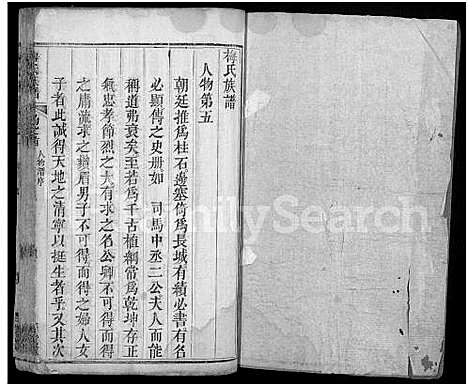 梅氏族譜
人物第五
朝廷推為柱石邊塞倚為長城有績必書有名
必顯傳之史册如 司馬中丞二公夫人而能
道弗衰矣至若為千古植綱常為乾坤存正
氣忠孝節烈之大有求之名公卿不可得而得
之庸流求之鬚眉男子不可得而得之婦人女
子者此誠得天地之清寧以挺生者乎又其次
人物譜序
FamilySearch